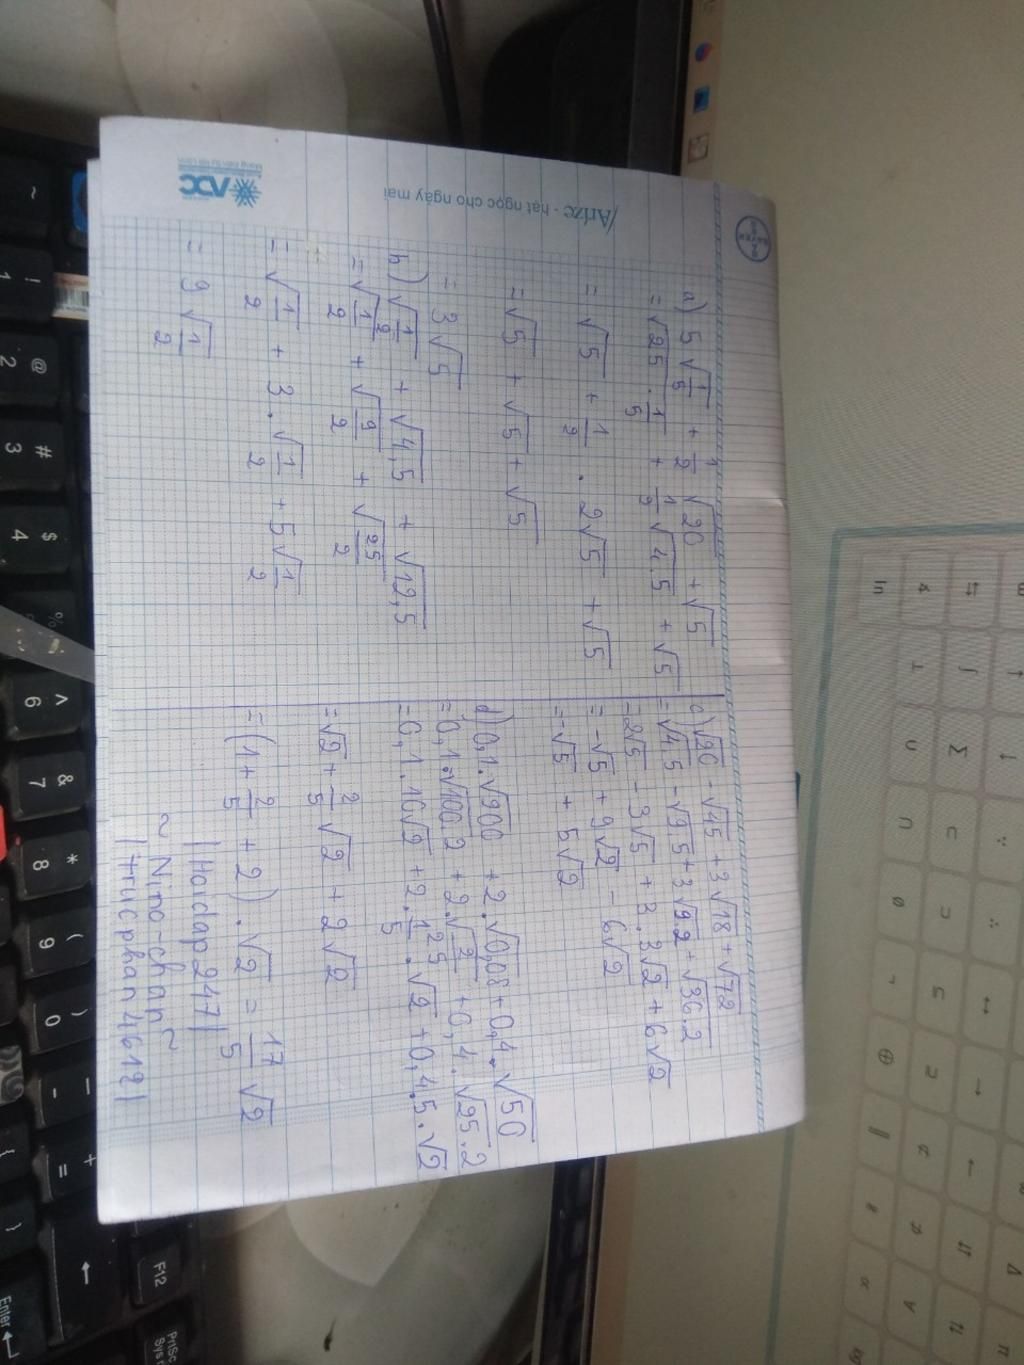 Arize - hạt ngọc cho ngày mai
BAYER
a) 5√1/5 + 1/2 √20 + √5
= √25 . 1/5 + 1/2 √4.5 + √5
= √5 + 1/2 . 2√5 + √5
= √5 + √5 + √5
= 3√5
b) √1/2 + √4,5 + √12,5
= √1/2 + √9/2 + √25/2
= √1/2 + 3.√1/2 + 5√1/2
= 9√1/2
c) √20 - √45 + 3√18 + √72
= √4.5 - √9.5 + 3√9.2 + √36.2
= 2√5 - 3√5 + 3.3√2 + 6√2
= -√5 + 9√2 - 6√2
= -√5 + 5√2
d) 0,1.√200 + 2.√0,08 + 0,4.√50
= 0,1.√100.2 + 2.√2/25 + 0,4.√25.2
= 0,1.10√2 + 2.1/5.√2 + 0,4.5.√2
= √2 + 2/5 √2 + 2√2
= (1 + 2/5 + 2).√2 = 17/5 √2
|Hoidap247|
~ Nino-chan ~
|trucphan4612|
~
!
1
@
2
#
3
$
4
%
^
6
&
7
*
8
(
9
)
0
+
=
F12
PrtSc
Enter